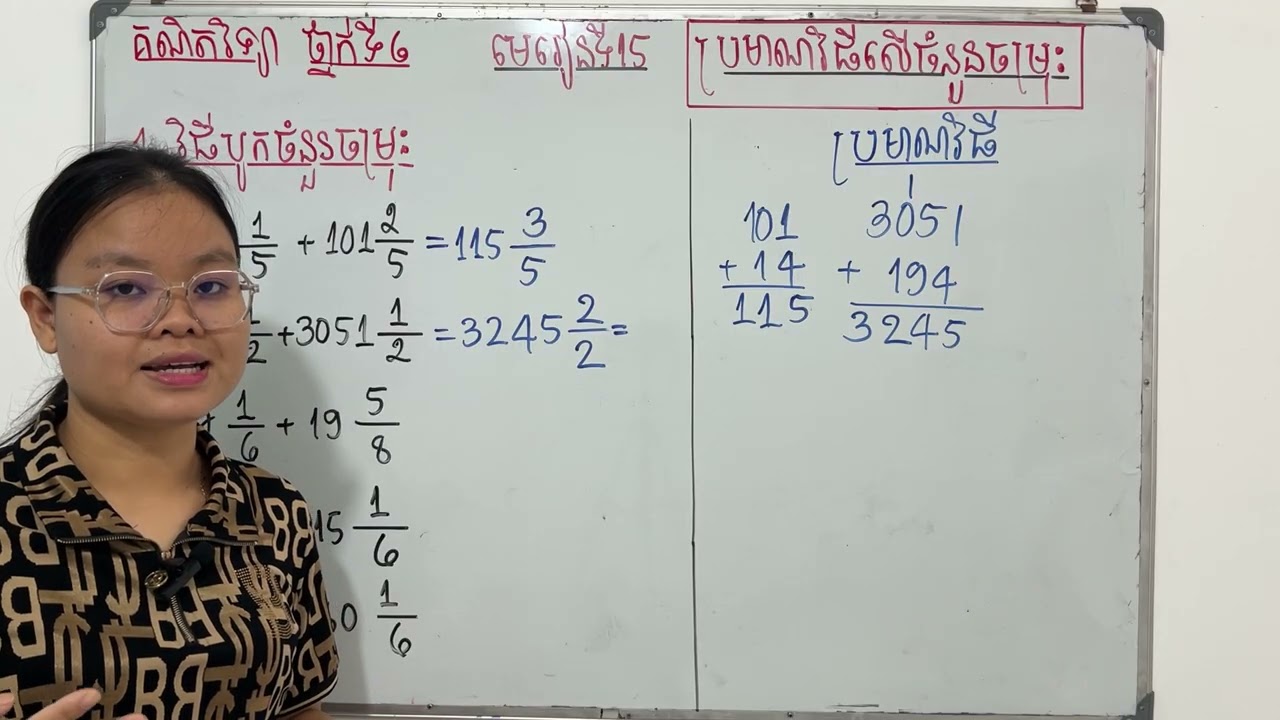 គណិតវិទ្យា ថ្នាក់ទី៦ មេរៀនទី15 ប្រមាណវិធីលើចំនួនចម្រុះ
1. វិធីបូកចំនួនចម្រុះ
ប្រមាណវិធី
1/5 + 101 2/5 = 115 3/5
1/2 + 3051 1/2 = 3245 2/2 =
+ 1/6 + 19 5/8
15 1/6
60 1/6
101
+ 14
115
1
3051
+ 194
3245